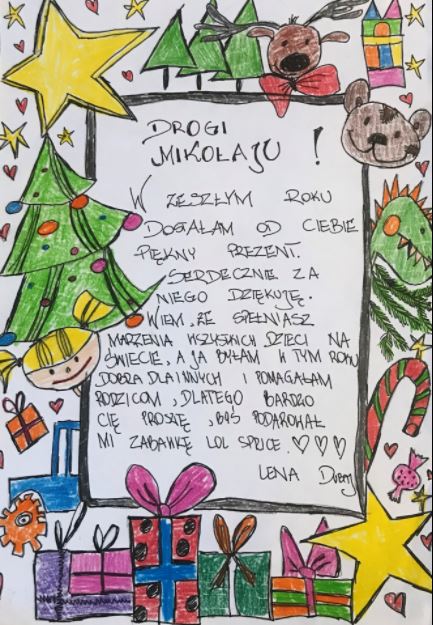 DROGI
MIKOŁAJU !
W ZESZŁYM ROKU
DOSTAŁAM OD CIEBIE
PIĘKNY PREZENT.
SERDECZNIE ZA
NIEGO DZIĘKUJĘ.
WIEM, ŻE SPEŁNIASZ
MARZENIA WSZYSTKICH DZIECI NA
ŚWIECIE, A JA BYŁAM W TYM ROKU
DOBRA DLA INNYCH I POMAGAŁAM
RODZICOM, DLATEGO BARDZO
CIĘ PROSZĘ, BYŚ PODAROWAŁ
MI ZABAWKĘ LOL SPRICE. ♡♡♡
LENA